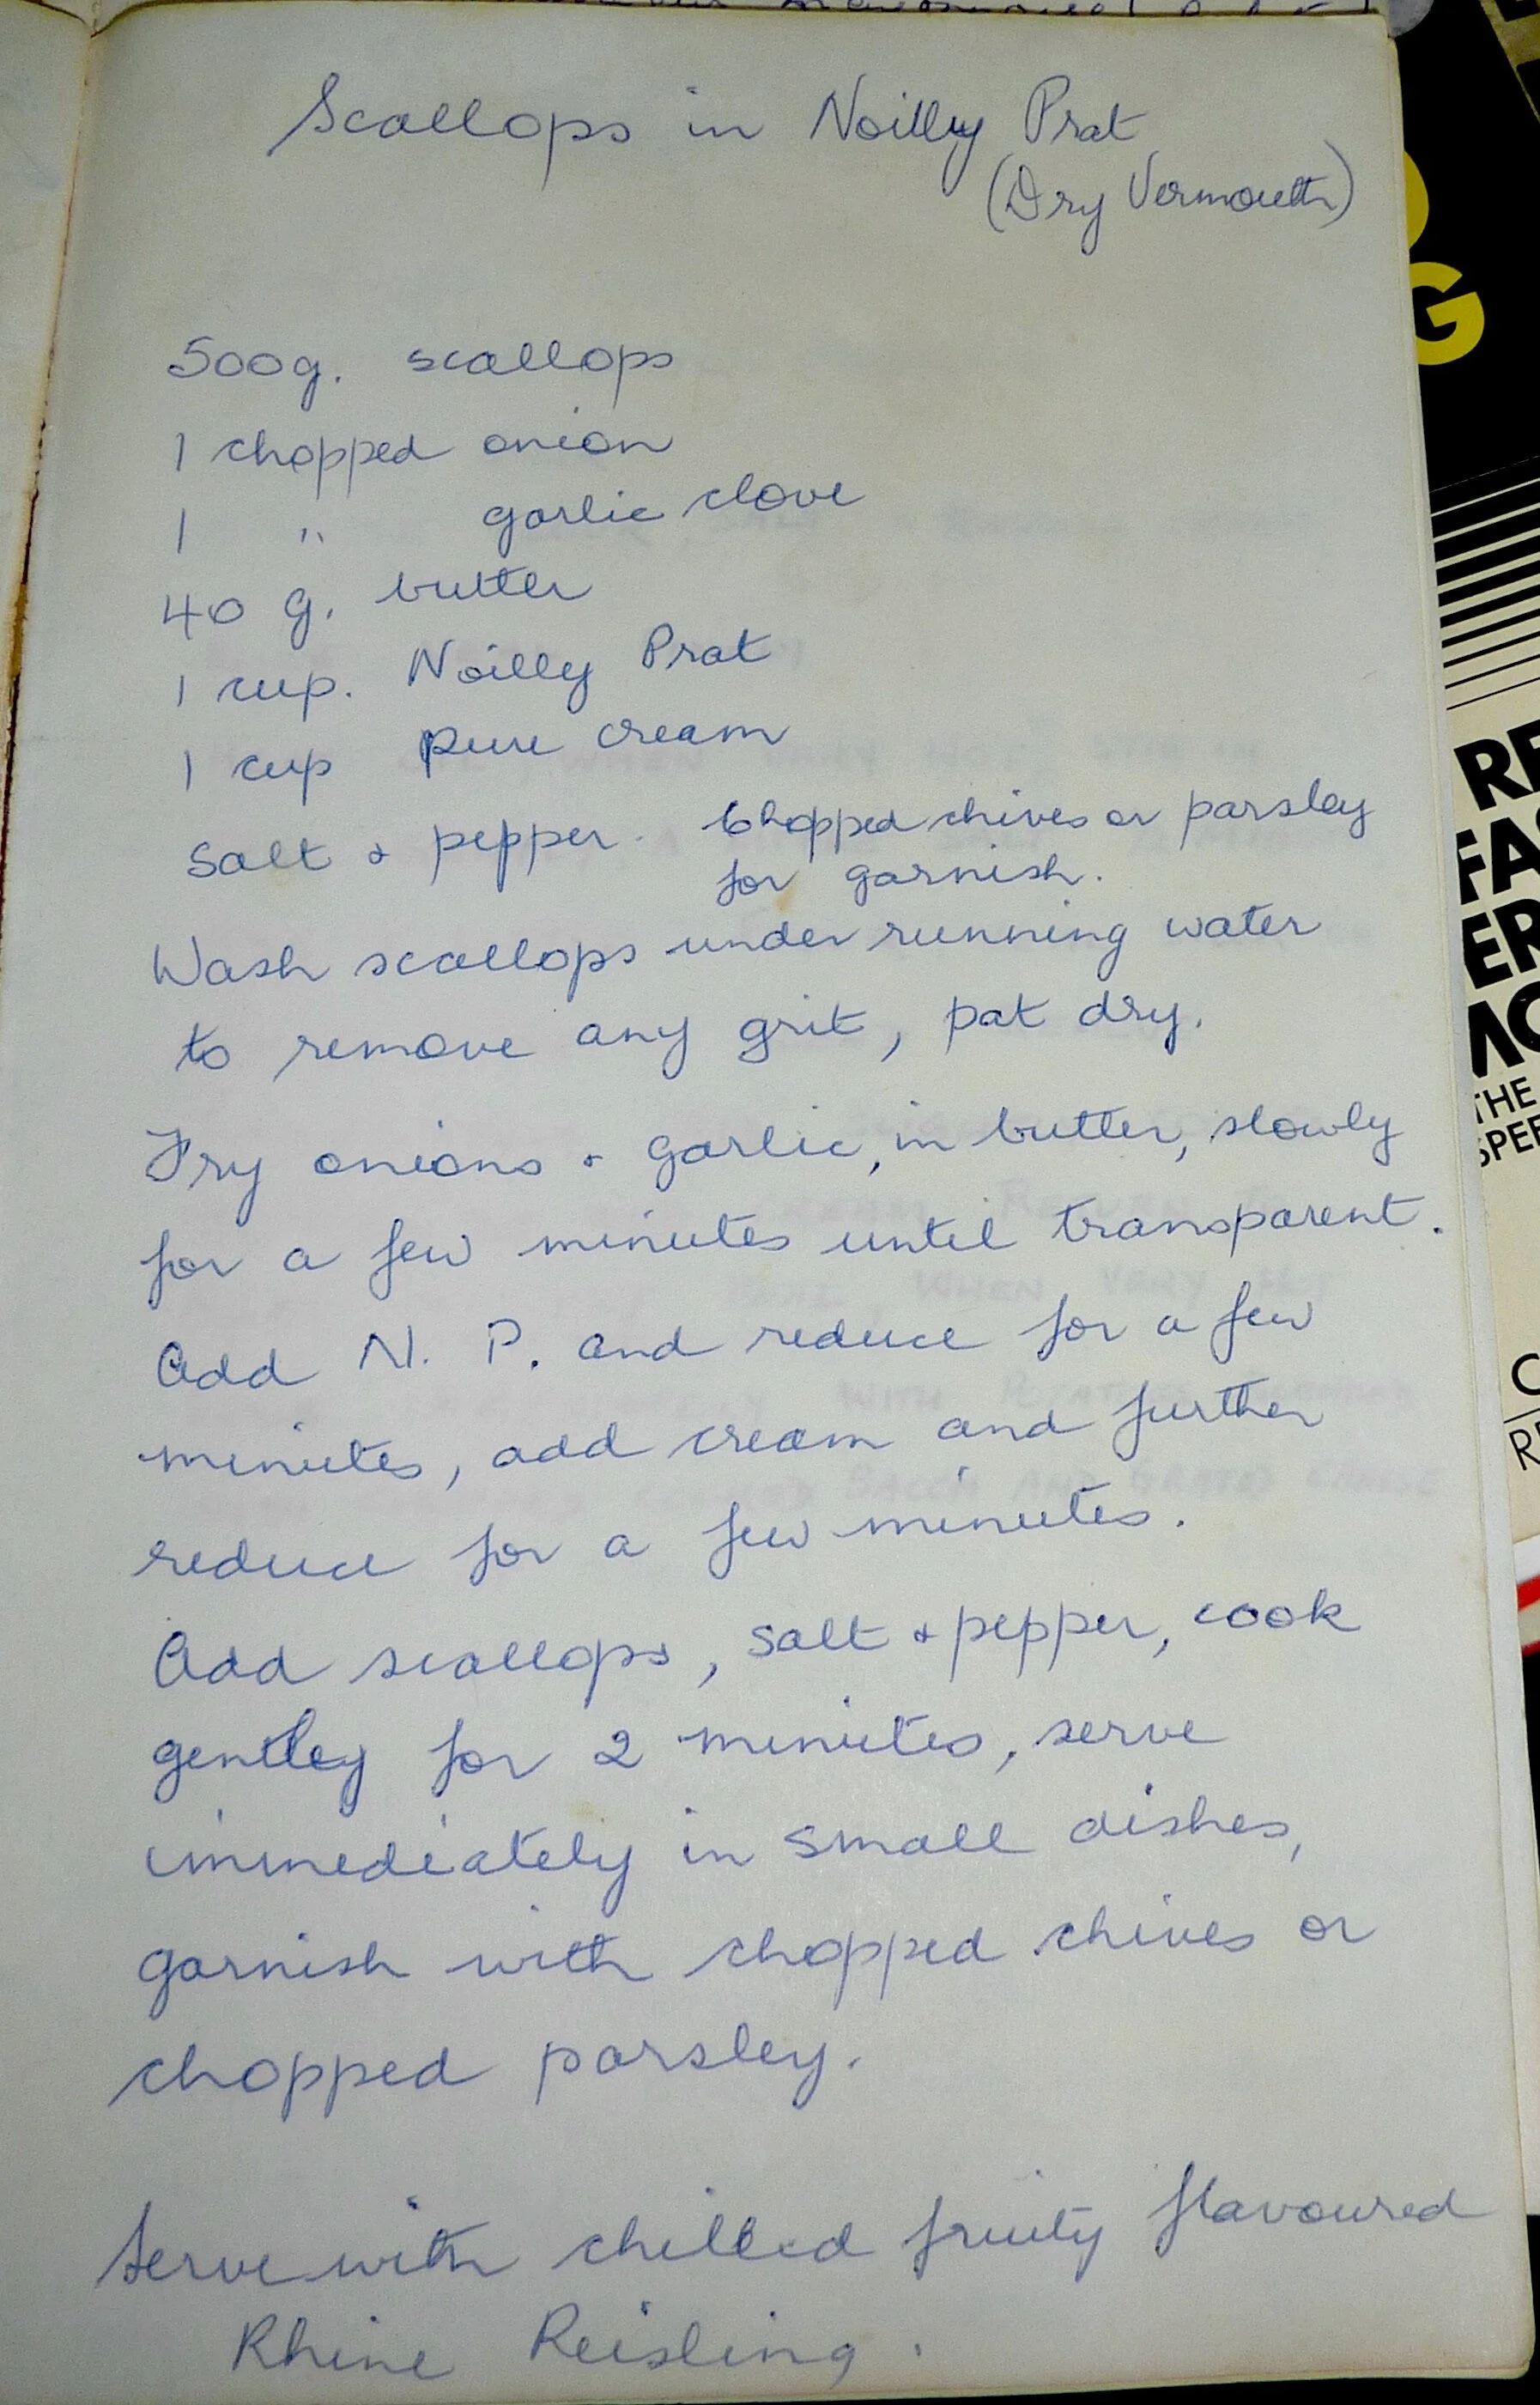 Scallops in Noilly Prat
(Dry Vermouth)
500g. scallops
1 chopped onion
1 " garlic clove
40 g. butter
1 cup. Noilly Prat
1 cup pure cream
Salt & pepper. Chopped chives or parsley
for garnish.
Wash scallops under running water
to remove any grit, pat dry.
Fry onions & garlic, in butter, slowly
for a few minutes until transparent.
Add N. P. and reduce for a few
minutes, add cream and further
reduce for a few minutes.
Add scallops, salt & pepper, cook
gently for 2 minutes, serve
immediately in small dishes,
garnish with chopped chives or
chopped parsley.
Serve with chilled fruity flavoured
Rhine Reisling.
G
THE